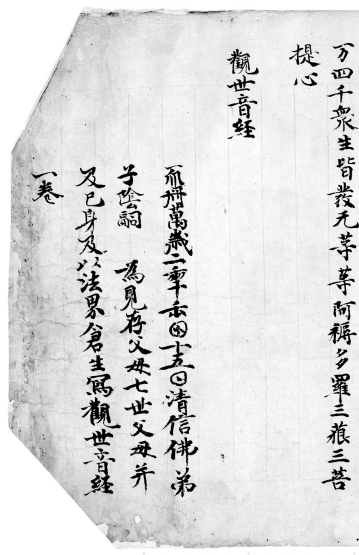 万四千衆生皆發无等等阿耨多羅三藐三菩
提心
觀世音経
𠀑冊萬歲二𠡦𠙺囝十五𡆠清信佛弟
子陰嗣　為見存父母七世父母并
及己身及以法界倉生寫觀世音経
一卷